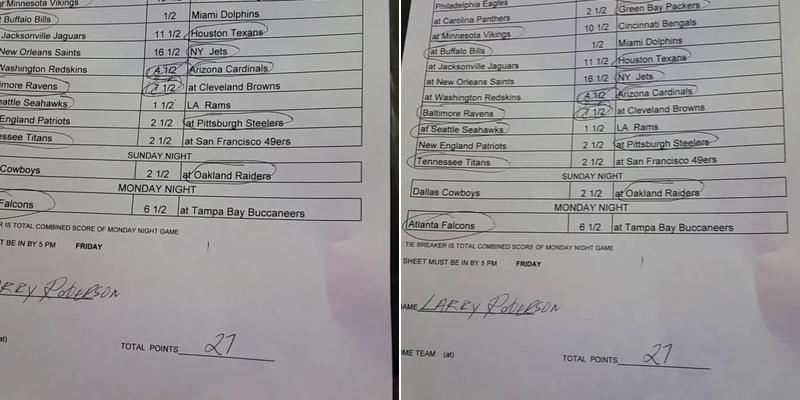 at Minnesota Vikings
at Buffalo Bills 1/2 Miami Dolphins
Jacksonville Jaguars 11 1/2 Houston Texans
New Orleans Saints 16 1/2 NY Jets
Washington Redskins 4 1/2 Arizona Cardinals
more Ravens 7 1/2 at Cleveland Browns
eattle Seahawks 1 1/2 LA Rams
England Patriots 2 1/2 at Pittsburgh Steelers
ssee Titans 2 1/2 at San Francisco 49ers
SUNDAY NIGHT
Cowboys 2 1/2 at Oakland Raiders
MONDAY NIGHT
Falcons 6 1/2 at Tampa Bay Buccaneers
R IS TOTAL COMBINED SCORE OF MONDAY NIGHT GAME
T BE IN BY 5 PM FRIDAY
RRY ROBERSON
at)
TOTAL POINTS 27
Philadelphia Eagles 2 1/2 Green Bay Packers
at Carolina Panthers 10 1/2 Cincinnati Bengals
at Minnesota Vikings
at Buffalo Bills 1/2 Miami Dolphins
at Jacksonville Jaguars 11 1/2 Houston Texans
at New Orleans Saints 16 1/2 NY Jets
at Washington Redskins 4 1/2 Arizona Cardinals
Baltimore Ravens 7 1/2 at Cleveland Browns
at Seattle Seahawks 1 1/2 LA Rams
New England Patriots 2 1/2 at Pittsburgh Steelers
Tennessee Titans 2 1/2 at San Francisco 49ers
SUNDAY NIGHT
Dallas Cowboys 2 1/2 at Oakland Raiders
MONDAY NIGHT
Atlanta Falcons 6 1/2 at Tampa Bay Buccaneers
TIE BREAKER IS TOTAL COMBINED SCORE OF MONDAY NIGHT GAME
SHEET MUST BE IN BY 5 PM FRIDAY
AME LARRY ROBERSON
ME TEAM (at)
TOTAL POINTS 27